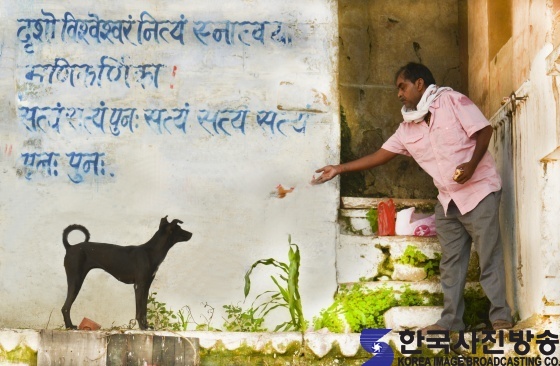 दृशो विश्वेश्वरं नित्यं स्नात्व या
मणिकर्णिका !
सत्यं सत्यं पुनः सत्यं सत्यं सत्यं
पुनः पुनः
한국사진방송
KOREA IMAGE BROADCASTING CO.